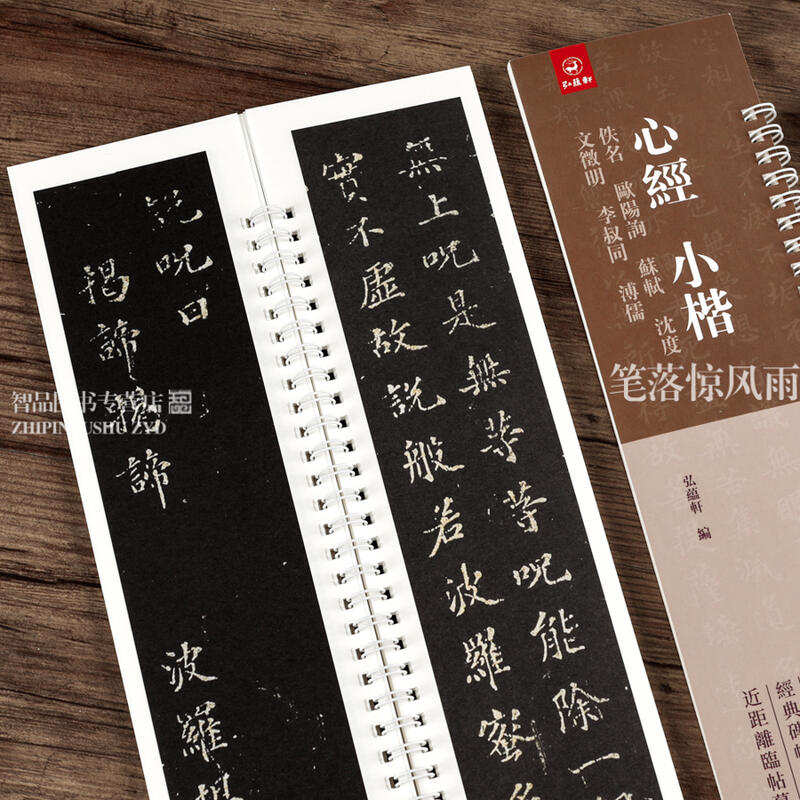 弘蘊軒
心經 小楷
佚名 歐陽詢 蘇軾 沈度
文徵明 李叔同 溥儒
弘蘊軒 編
經典碑帖
近距離臨帖
笔落惊风雨
無上呪是無等等呪能除一
實不虛故說般若波羅蜜多
說呪曰
揭諦揭諦 波羅揭
智品图书专营店
ZHIPINTUSHU ZYD